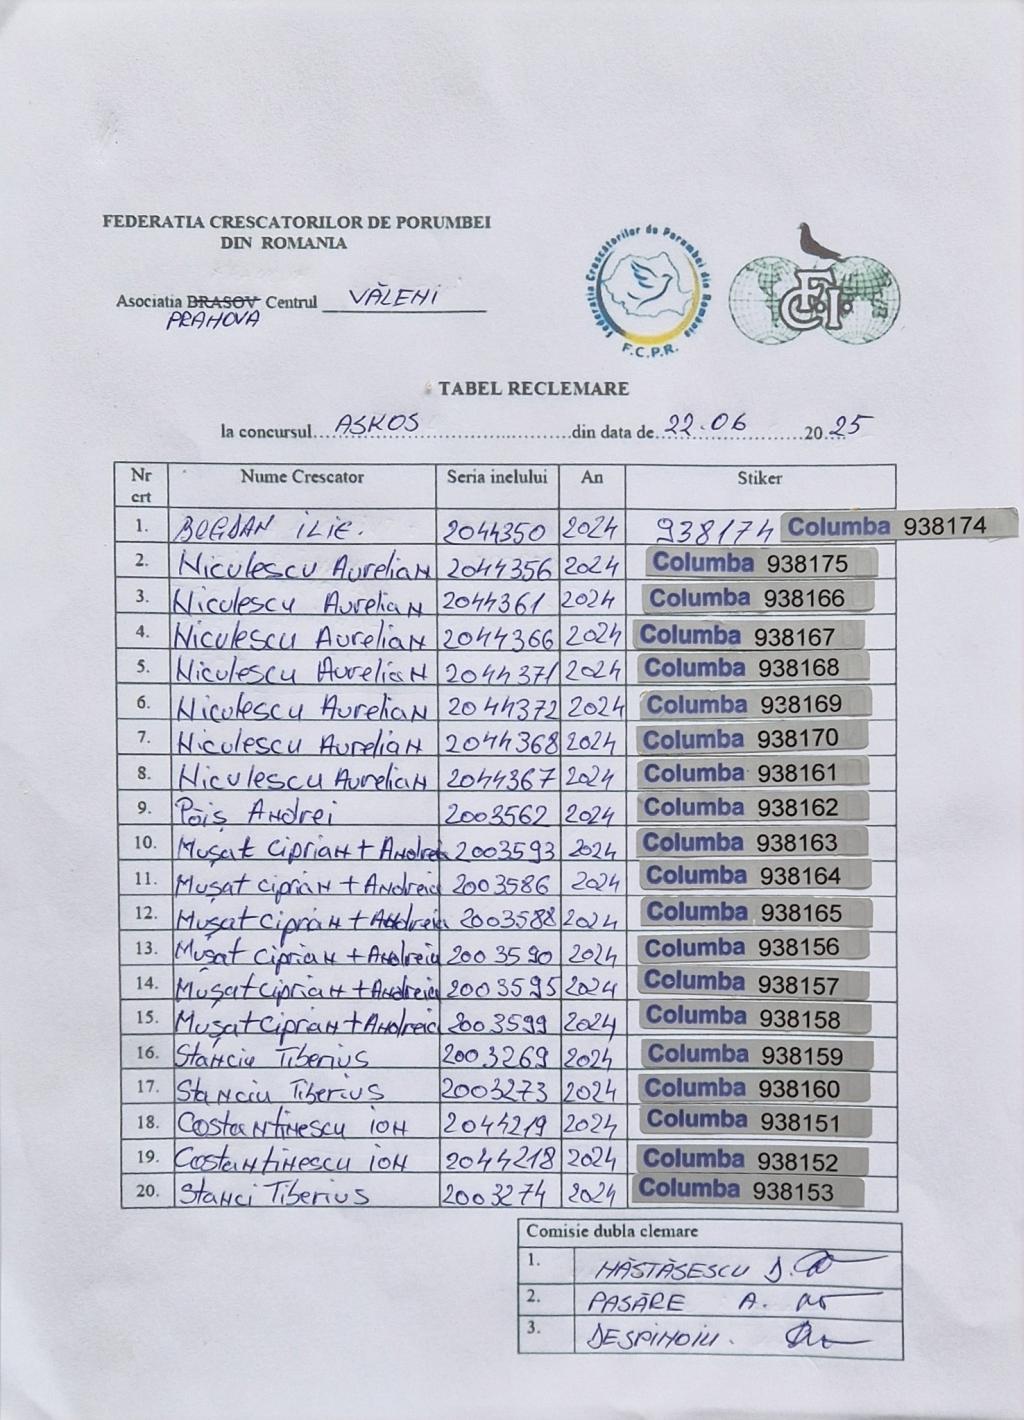 FEDERATIA CRESCATORILOR DE PORUMBEI
DIN ROMANIA
Asociatia BRASOV Centrul VĂLENI
PRAHOVA
Federatia Crescătorilor de Porumbei din România
F.C.P.R.
FCI
TABEL RECLEMARE
la concursul... ASKOS ...din data de... 22.06 ...20 25
Nr crt Nume Crescator Seria inelului An Stiker
1. BOGDAN ILIE. 2044350 2024 938174 Columba 938174
2. Niculescu Aurelian 2044356 2024 Columba 938175
3. Niculescu Aurelian 2044361 2024 Columba 938166
4. Niculescu Aurelian 2044366 2024 Columba 938167
5. Niculescu Aurelian 2044371 2024 Columba 938168
6. Niculescu Aurelian 2044372 2024 Columba 938169
7. Niculescu Aurelian 2044368 2024 Columba 938170
8. Niculescu Aurelian 2044367 2024 Columba 938161
9. Păiș Andrei 2003562 2024 Columba 938162
10. Mușat Ciprian + Andreea 2003593 2024 Columba 938163
11. Mușat Ciprian + Andreia 2003586 2024 Columba 938164
12. Mușat Ciprian + Andreia 2003588 2024 Columba 938165
13. Mușat Ciprian + Andreia 2003590 2024 Columba 938156
14. Mușat Ciprian + Andreia 2003595 2024 Columba 938157
15. Mușat Ciprian + Andreia 2003599 2024 Columba 938158
16. Stanciu Tiberius 2003269 2024 Columba 938159
17. Stanciu Tiberius 2003273 2024 Columba 938160
18. Costantinescu ion 2044219 2024 Columba 938151
19. Costantinescu ion 2044218 2024 Columba 938152
20. Stanci Tiberius 2003274 2024 Columba 938153
Comisie dubla clemare
1. NĂSTĂSESCU D.
2. PASĂRE A.
3. DESPINOIU.